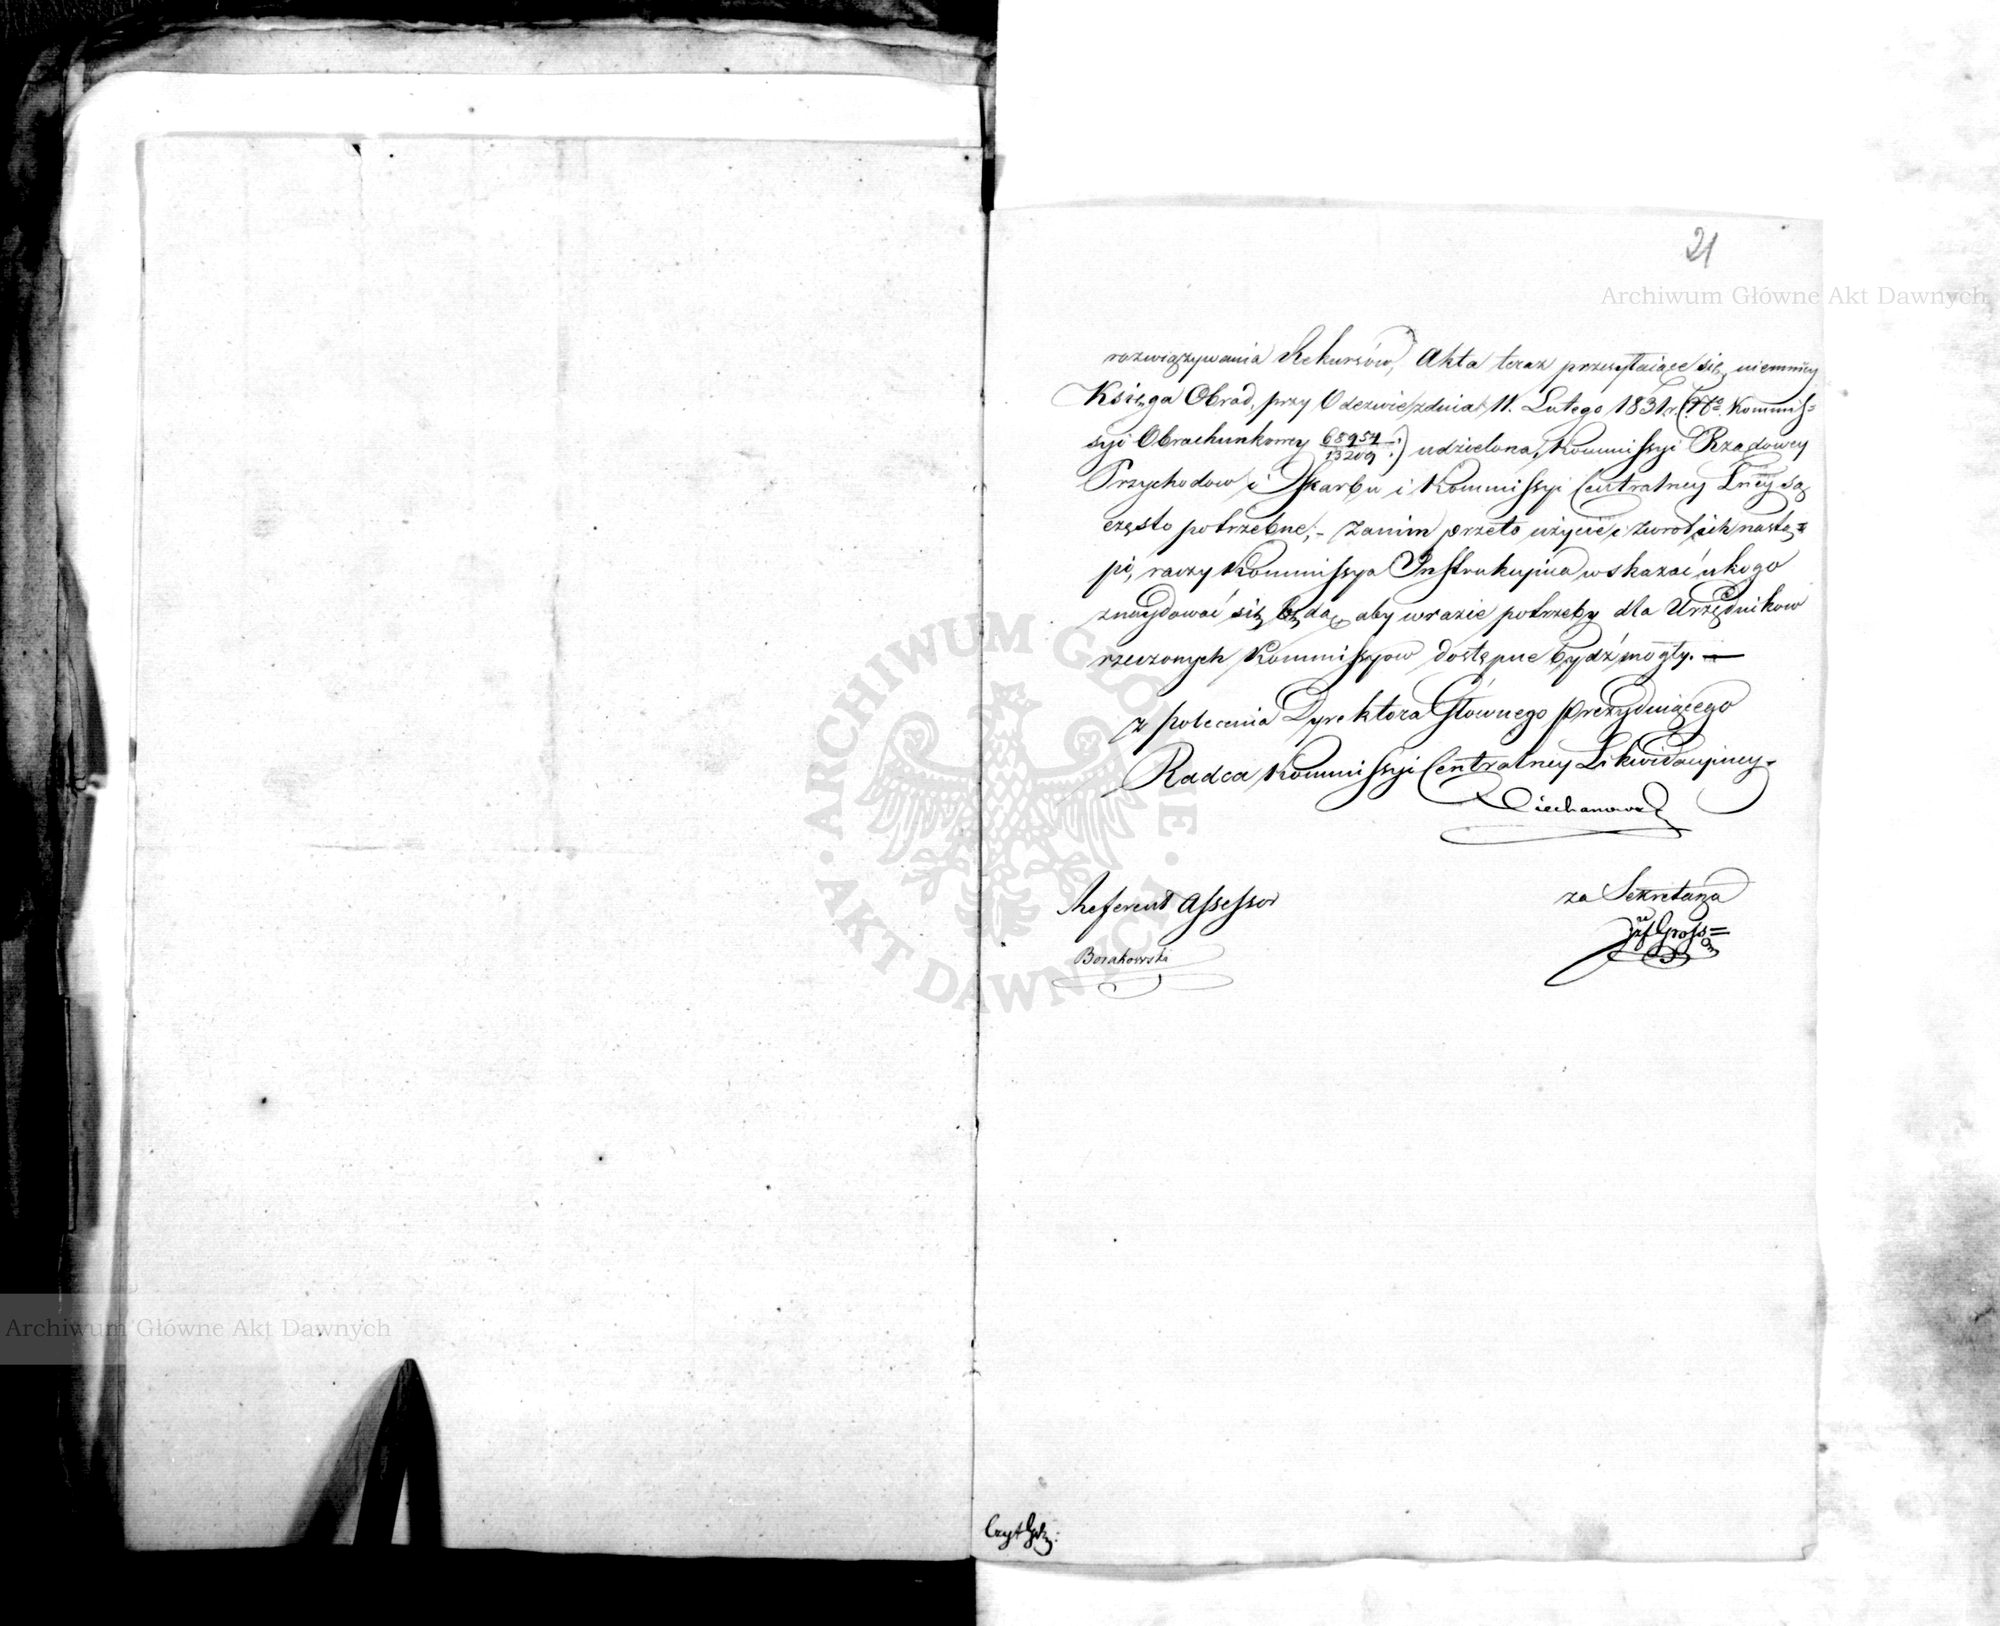 21
Archiwum Główne Akt Dawnych
rozwiązywania Rekursów, Akta teraz przesyłaiące się, niemniey
Księga Obrad, przy Odezwie z dnia 11. Lutego 1831 r. (N<sup>o</sup> Kommis=
syi Obrachunkowey 68954/13209) udzielona, Kommissyi Rządowey
Przychodow i Skarbu i Kommissyi Centralney Lney są
często potrzebne, - zanim przeto użycie i zwrot ich nastą=
pi, raczy Kommissya Instrukcyina wskazać u kogo
znaydować się będą, aby w razie potrzeby dla Urzędnikow
rzeczonych Kommissyow dostępne bydź mogły. —
z polecenia Dyrektora Głównego Prezyduiącego
Radca Kommissyi Centralney Likwidacyiney.
Ciechanowski
Referent Assessor
za Sekretarza
Borakowski
Józef Gross
ARCHIWUM GŁÓWNE AKT DAWNYCH
Archiwum Główne Akt Dawnych
Czyt